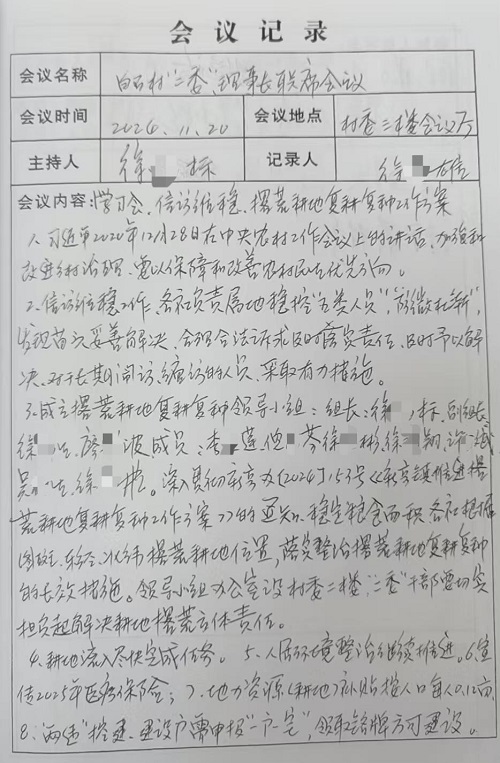 会议记录
会议名称 白石村"二委"、理事长联席会议
会议时间 2024.11.20 会议地点 村委二楼会议厅
主持人 徐 标 记录人 徐
会议内容:学习会、信访维稳、撂荒耕地复耕复种工作方案
1、习近平2020年12月28日在中央农村工作会议上的讲话,加强和
改进乡村治理,要以保障和改善农村民生优先方向。
2、信访维稳工作,各社负责属地稳控"五类人员",
发现苗头妥善解决,合理合法诉求及时落实责任,及时予以解
决,对于长期闹访、缠访的人员,采取有力措施。
3、成立撂荒耕地复耕复种领导小组:组长:徐 标,副组长
徐 生、廖 波成员:李 莲 芬徐 彬徐 翔 斌
吴 生、徐 。深入贯彻 办[2024]153号《 镇推进撂
荒耕地复耕复种工作方案》的通知,稳定粮食面积,各社根据
图斑、东经、北纬撂荒耕地位置,落实整治撂荒耕地复耕复种
的长效措施。领导小组办公室设村委二楼,"二委"干部要切实
担负起解决耕地撂荒主体责任。
4、耕地流入尽快完成任务。 5、人居环境整治继续推进。6、宣
传2025年医疗保险; 7、地力资源(耕地)补贴按人口每人0.12亩,
8、两违"控建、建设户需申报"一户一宅",领取铭牌方可建设。